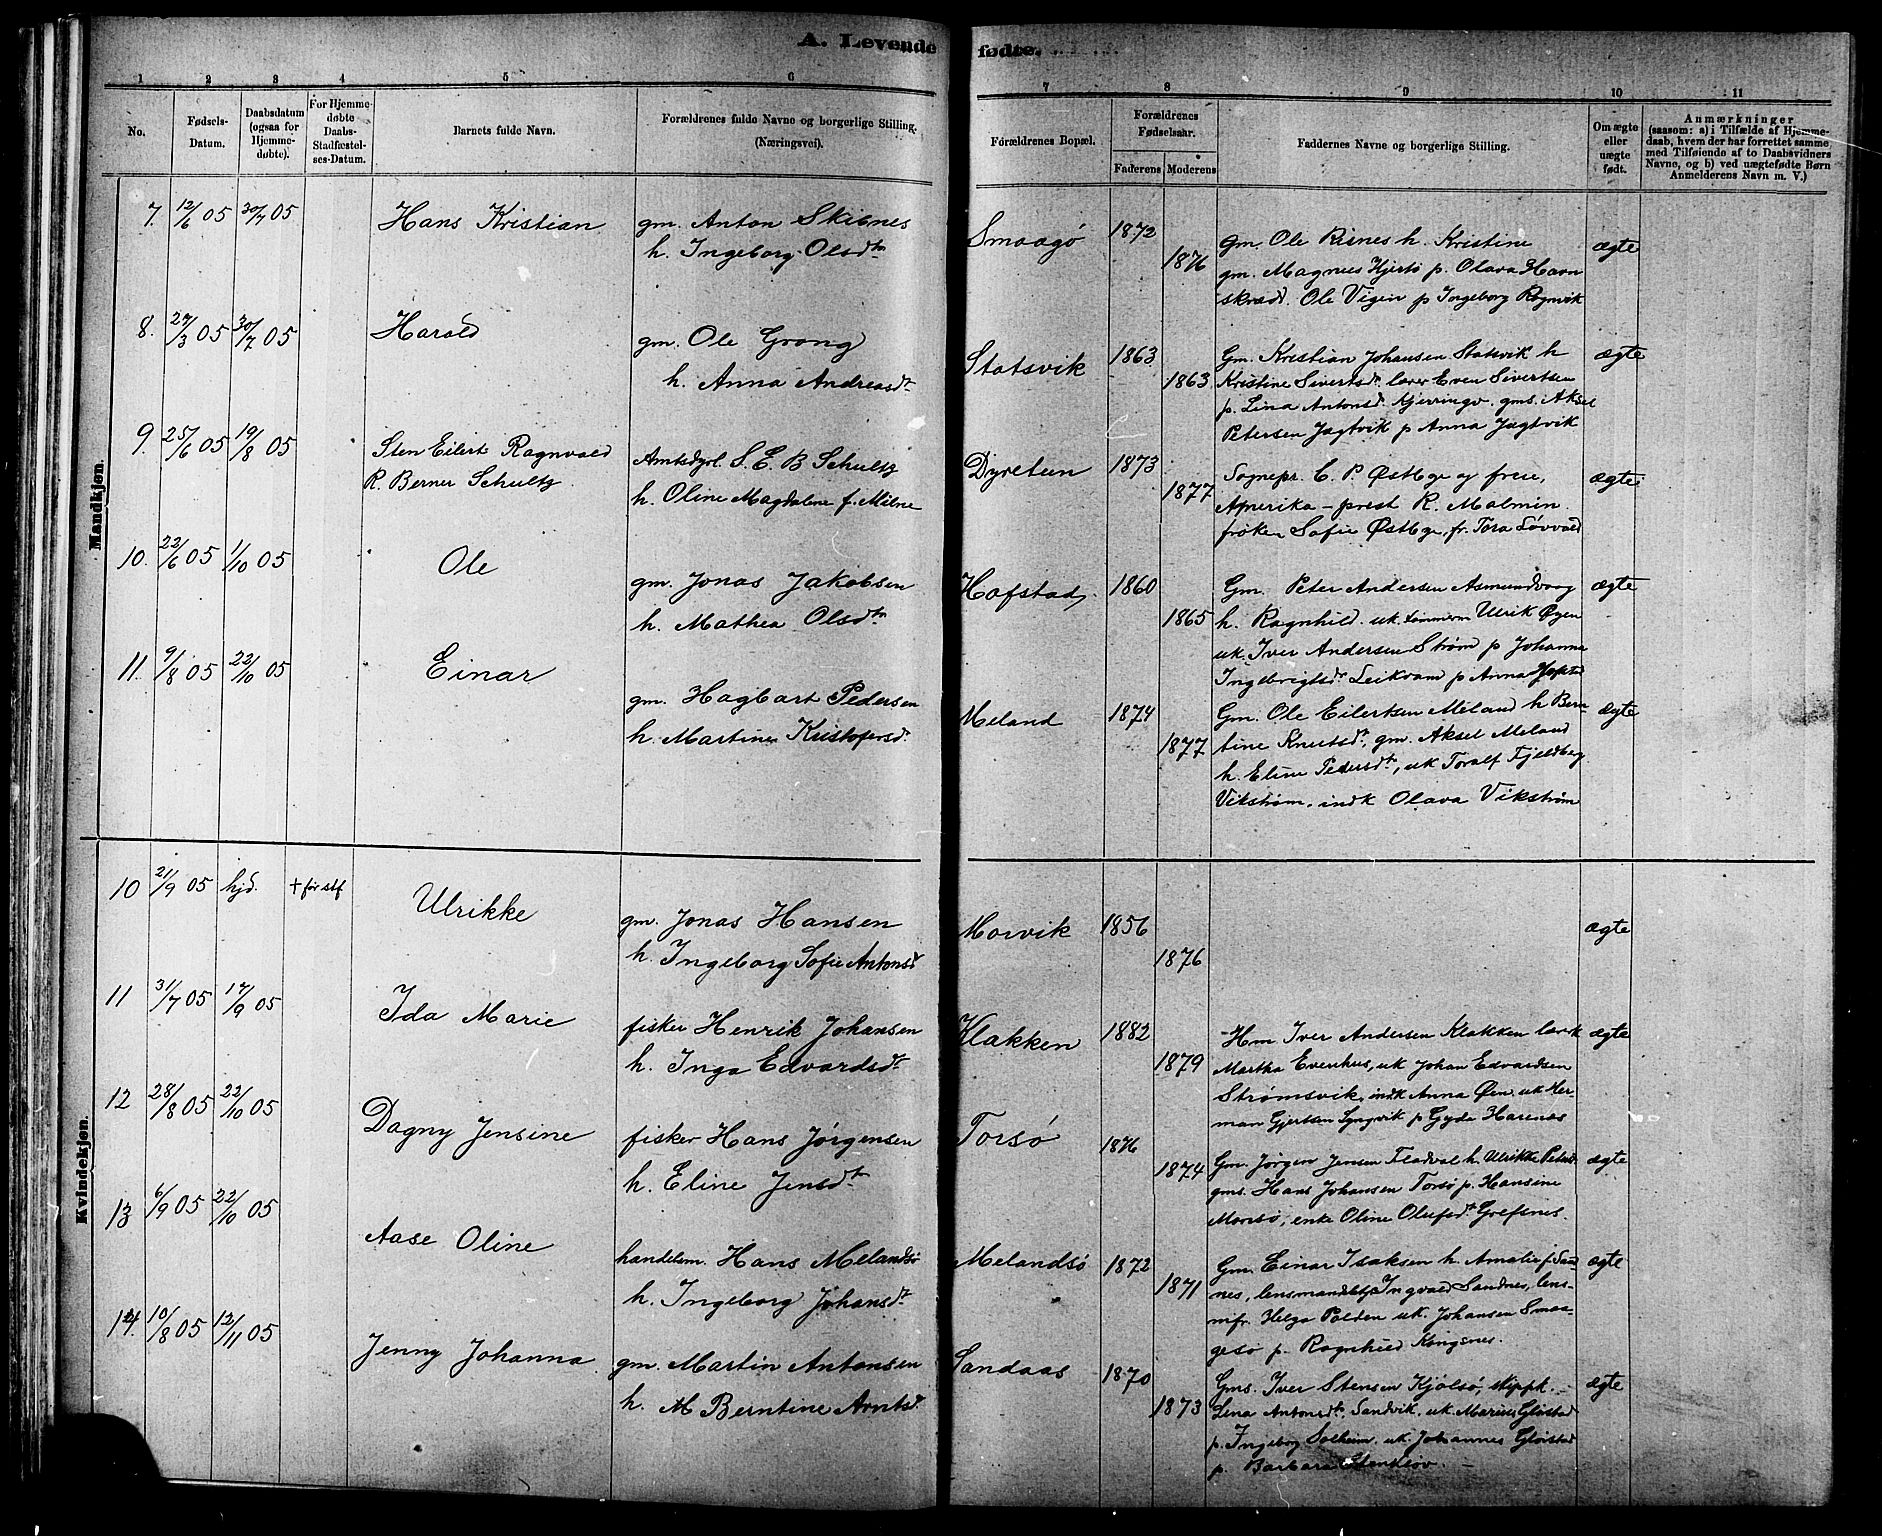 A. Levende fødte.
1 2 3 4 5 6 7 8 9 10 11
No.
Fødsels-
Datum.
Daabsdatum
(ogsaa for
Hjemme-
døbte).
For Hjemme-
døbte
Daabs-
Stadfæstel-
ses-Datum.
Barnets fulde Navn.
Forældrenes fulde Navne og borgerlige Stilling.
(Næringsvei).
Forældrenes Bopæl.
Forældrenes
Fødselsaar.
Faderens Moderens
Faddernes Navne og borgerlige Stilling.
Om ægte
eller
uægte
født.
Anmærkninger
(saasom: a) i Tilfælde af Hjemme-
daab, hvem der har forrettet samme,
med Tilføiende af to Daabsvidners
Navne, og b) ved uægtefødte Børn
Anmelderens Navn m. V.)
Mandkjøn.
7. 12/6 05 30/7 05 Hans Kristian
gm. Anton Skisnes
h. Ingeborg Olsdtr
Smaagø 1872 1876
Gm. Ole Risnes h. Kristine
gm. Magnus Hjertø p. Olava Havn
skrædd. Ole Vigen p Ingeborg Rognvik
ægte
8. 27/3 05 30/7 05 Harald
gm. Ole Grong
h. Anna Andreasdt
Statsvik 1863 1863
Gm. Kristian Johansen Statsvik h
Kristine Sivertsdt. lærer Even Sivertsen
p. Lina Antonsd. Kjerringv. gms. Aksel
Petersen Jagtvik p Anna Jagtvik
ægte
9. 25/6 05 19/8 05 Sten Eilert Ragnvald
R. Berner Schultz
Amtsdyrl. S. E. B Schultz
h. Oline Magdalene f. Milne
Dyreteen 1873 1877
Sognepr. C. P. Østbye og frue,
Amerika-prest R. Malmin
frøken Sofie Østbye, fr. Tora Løvvald
ægte
10. 22/6 05 1/10 05 Ole
gm. Jonas Jakobsen
h. Mathea Olsdtr
Hofstad 1860 1865
Gm. Peter Andersen Asmundvaag
h. Ragnhild. uk. tømmerm Ulrik Øyen
uk. Iver Andersen Strøm p Johanna
Ingebrigtsdr Leikvam p Anna Hofsta
ægte
11. 9/8 05 22/10 05 Einar
gm. Hagbart Pedersen
h. Martine Kristofersd.
Meland 1874 1877
Gm. Ole Eilertsen Meland h Bern-
tine Knutsdt, gm. Aksel Meland
h. Eline Pedersdt, uk Toralf Fjeldberg
Vikstrøm, indk Olava Vikstrøm
ægte
Kvindekjøn.
10 21/9 05 hjd. + før stf Ulrikke
gm. Jonas Hansen
h. Ingeborg Sofie Antonsd
Morvik 1856 1876
ægte
11 31/7 05 17/9 05 Ida Marie
fisker Henrik Johansen
h. Inga Edvardsdt
Klakken 1882 1879
Hm Iver Andersen Klakken lærk
Martha Evenhus, uk Johan Edvardsen
Strømsvik, indk Anna Øien uk Her-
man Gjertsen Lyngvik p Gyda Harenes
ægte
12 28/8 05 22/10 05 Dagny Jensine
fisker Hans Jørgensen
h. Eline Jensdt
Torsø 1876 1874
Gm. Jørgen Jensen Fladval h. Ulrikke Petersd
gms. Hans Johansen Torsø p. Hansine
Morsø, enke Oline Olufsdt Grefsnes.
ægte
13 6/9 05 22/10 05 Aase Oline
handelsm. Hans Melandsø
h. Ingeborg Johansdt
Melandsø 1872 1871
Gm. Einar Isaksen h. Amalie f. San-
nes, lensmandsbtj Ingvald Sandnes, lens-
mfr. Helga Polden uk. Johansen Smaa-
gesø p. Ragnhild Kongsnes.
ægte
14. 10/8 05 12/11 05 Jenny Johanna
gm. Martin Antonsen
h. M Berntine Arntsd.
Sandaas 1870 1873
Gms. Iver Stensen Kjølsø, skippk.
Lina Antonsdt, Sandvik, uk. Marius Gløistad
p. Ingeborg Solheim, uk. Johannes Gløistad
p. Barbara
ægte